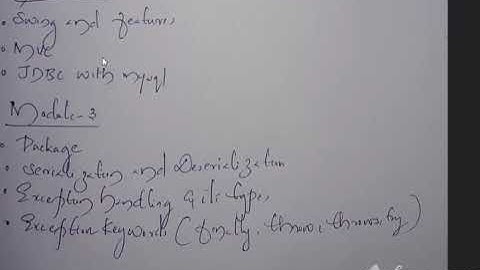 • Swing and features
• MVC
• JDBC with mysql
Module-3
• Package
• Serialization and Deserialization
• Exception handling & its types
• Exception keywords (finally, throw, throws, try)